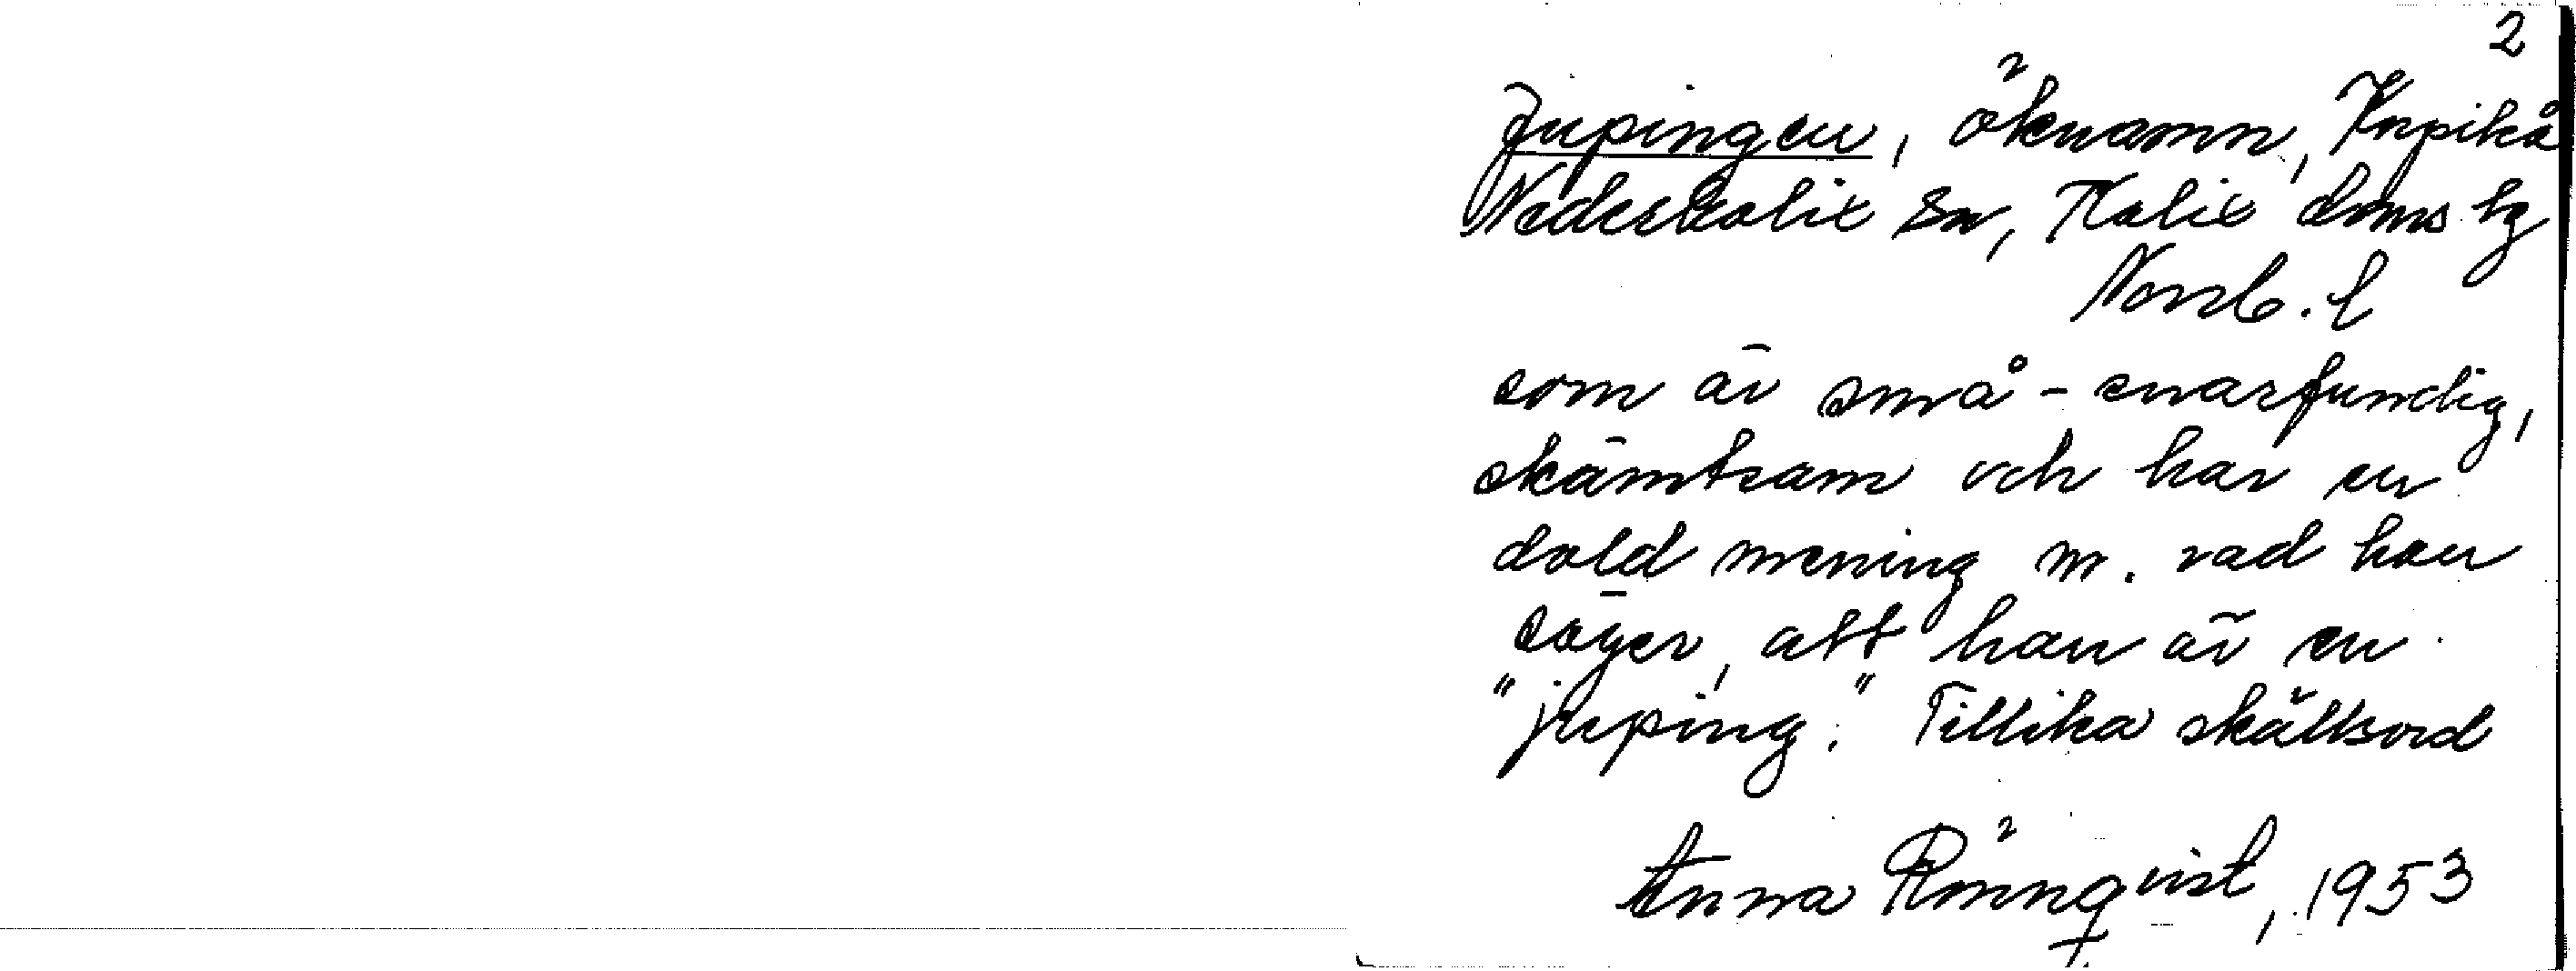 2
Jupingen, öknamn, Krpikå
Nederkalix sn, Kalix doms lg
Norrb. l
som är små-snarfundig,
skämtsam och har en
dold mening m. vad han
säger, att han är en
"juping". Tillika skällsord
Anna Rönnqvist, 1953